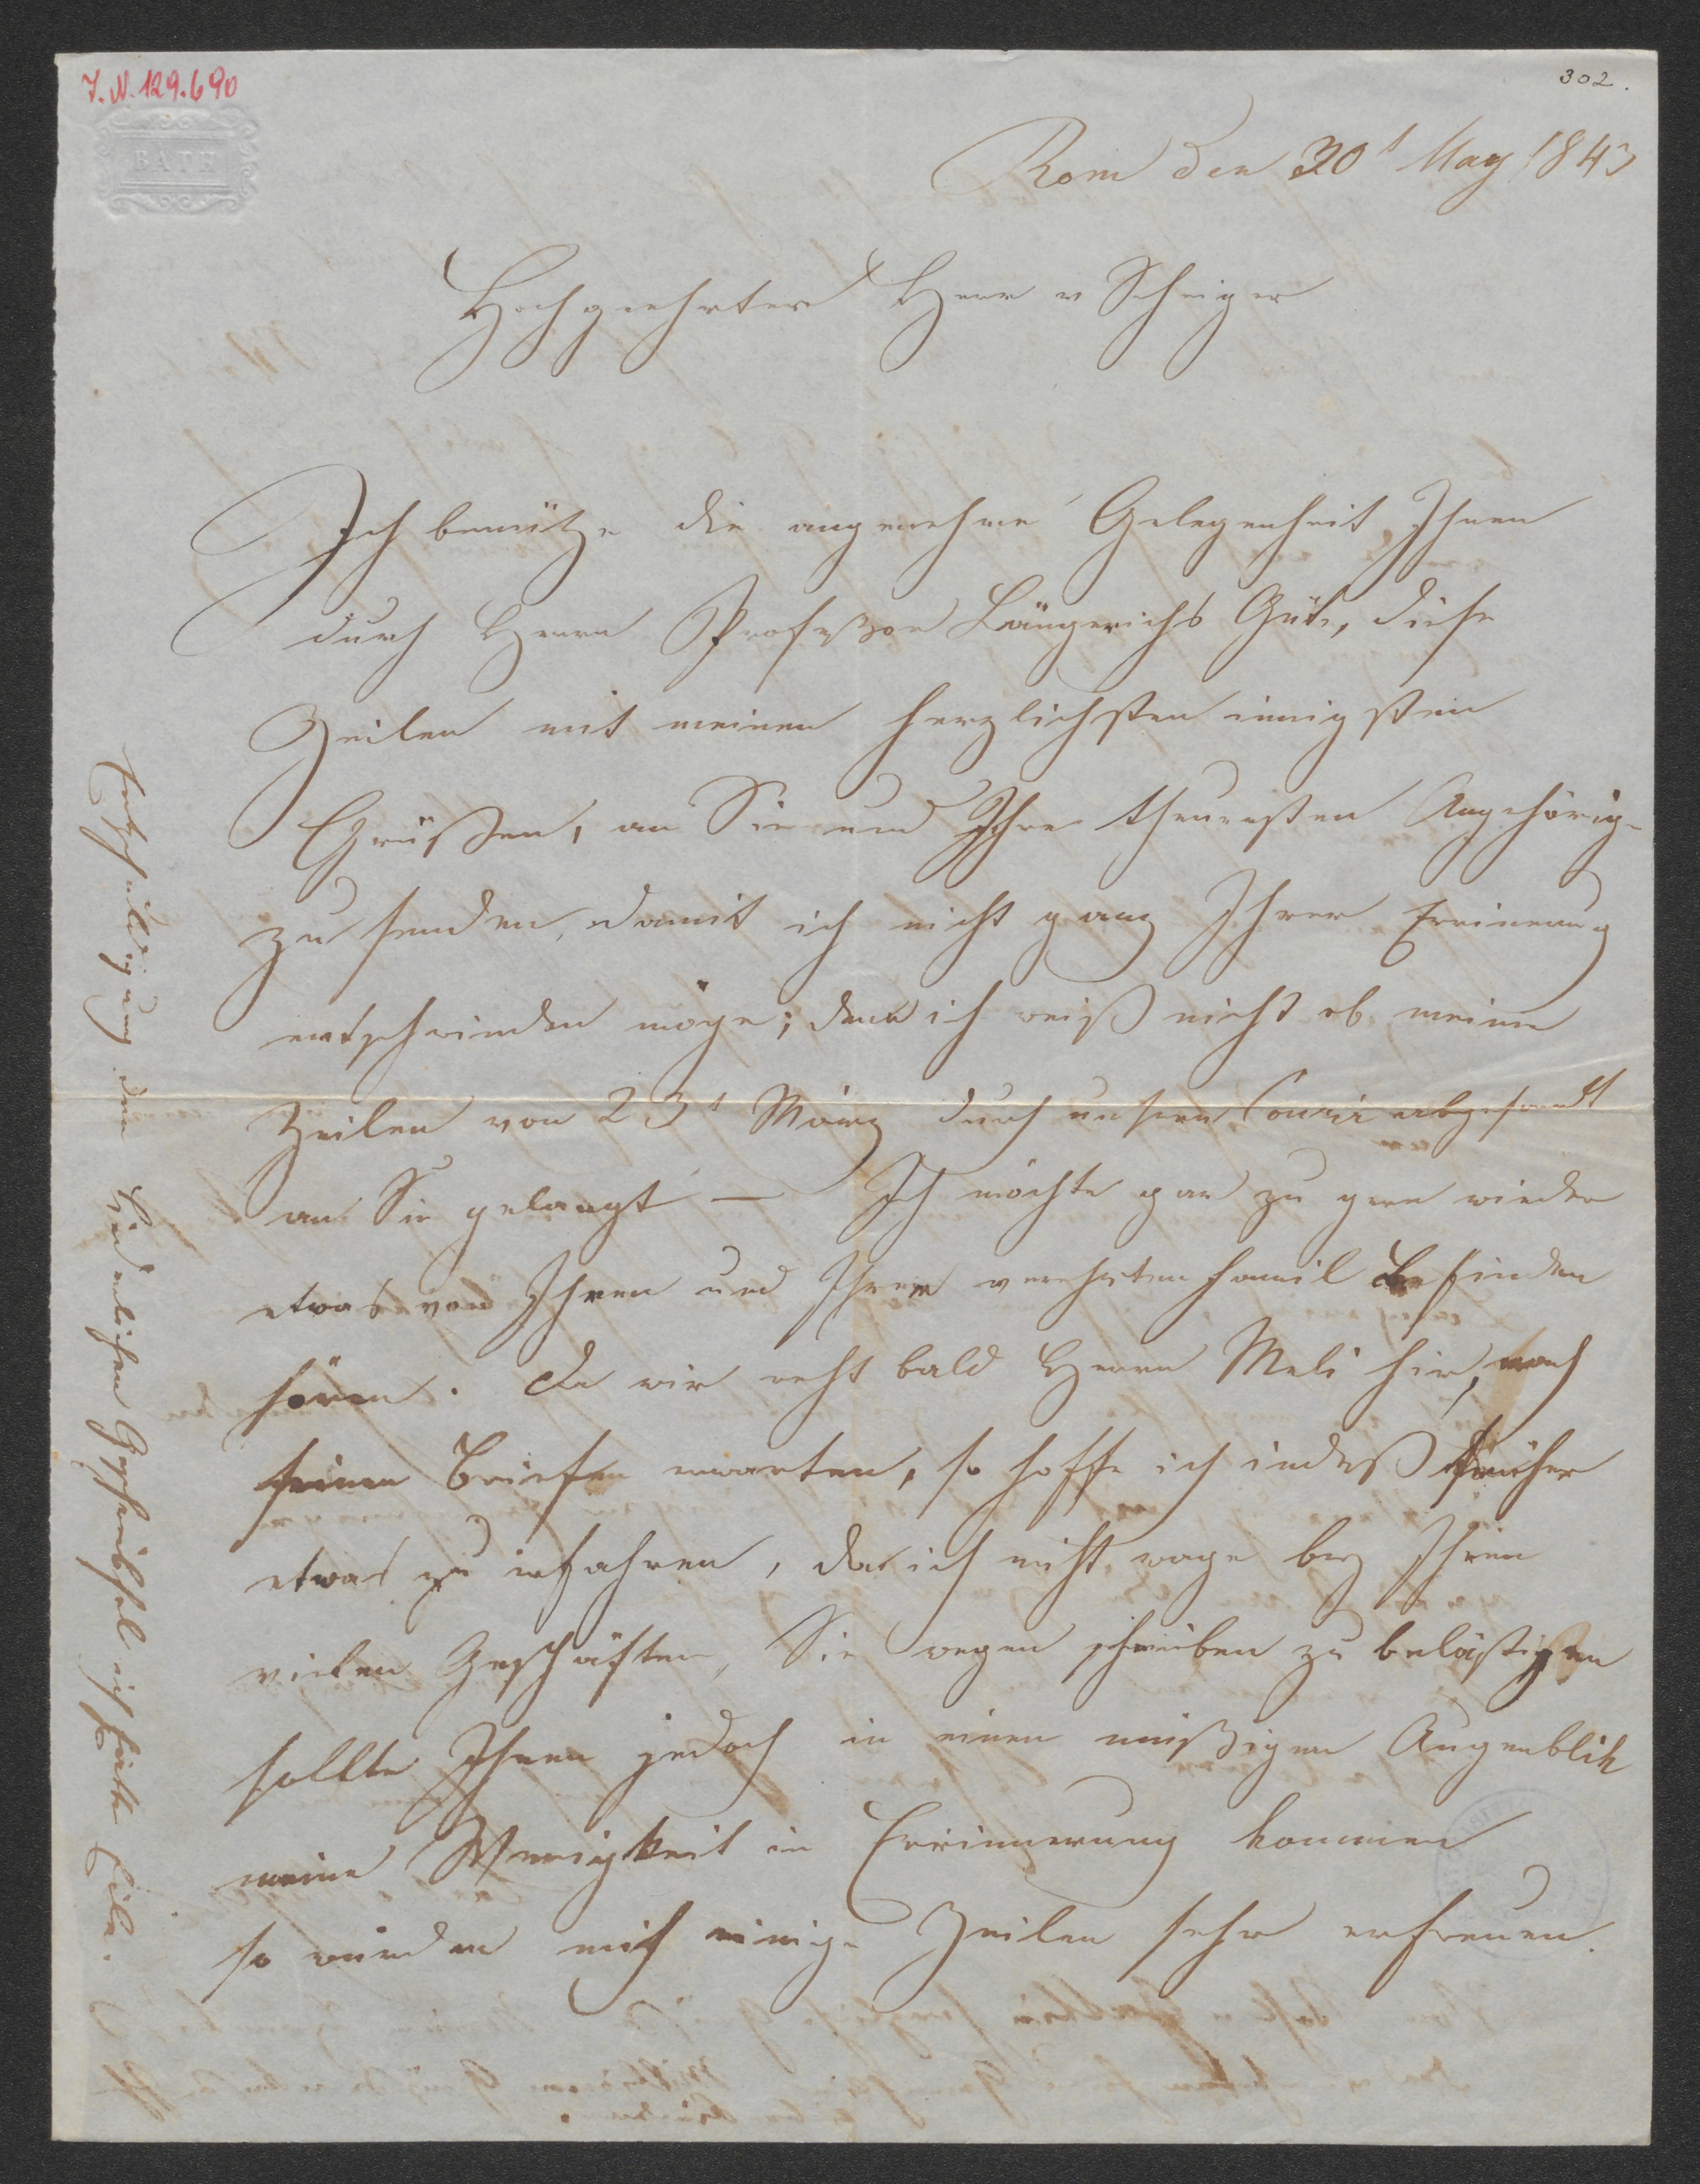 I. N. 129.690
302.
BATH
Rom den 30t May 1843
Hochgeehrter Herr v Scheiger
Ich benütze die angenehme Gelegenheit Ihnen
durch Herrn Profeßor Längerichs Güte, diese
Zeilen mit meinen herzlichsten innigsten
Grüßen, an Sie und Ihre theuersten Angehörig-
zu senden, damit ich nicht ganz Ihrer Erinnerung
entschwinden möge; denn ich weiß nicht ob meine
Zeilen von 23t März durch unsern Courir abgesandt
an Sie gelangt — Ich möchte gar zu gern wieder
etwas von Ihnen und Ihrer verehrten Famil Befinden
hören. Da wir recht bald Herrn Meli hier, nach
seinen Briefen erwarten, so hoffe ich indeß früher
etwas zu erfahren, da ich nicht wage bey Ihren
vielen Geschäften, Sie wegen schreiben zu belästigen
sollte Ihnen jedoch in einen müßigen Augenblik
meine Wenigkeit in Erinnerung kommen
so würden mich einige Zeilen sehr erfreuen.
Entschuldigung dem liederlichen Geschreibsel ich hatte Eile.